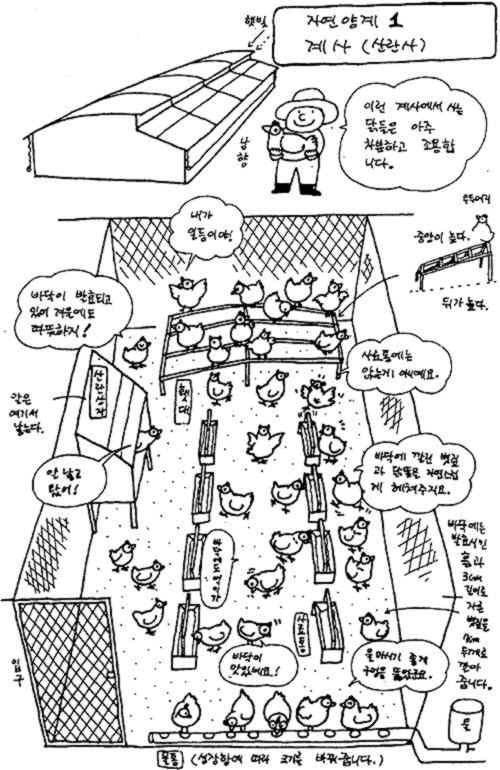 햇빛
자연양계 1
계사 (산란사)
남향
이런 계사에서 사는
닭들은 아주
차분하고 조용합
니다.
내가
일등이야!
우두머리
중앙이 높다.
뒤가 높다.
바닥이 발효되고
있어 겨울에도
따뜻하지!
산란상자
횃대
사료통에는
앉는게 아녜요.
알은
여기서
낳는다.
알 낳고
있어!
바닥에 깔린 볏짚
과 닭똥은 자연스럽
게
바닥에는
발효시킨
흙과
깊이로
볏짚을
두께로
깔아
줍니다.
사료통
바닥이
맛있네요!
물마시기 좋게
구멍을 뚫었군요.
입구
물
물통 (성장함에 따라 크기를 바꿔줍니다.)